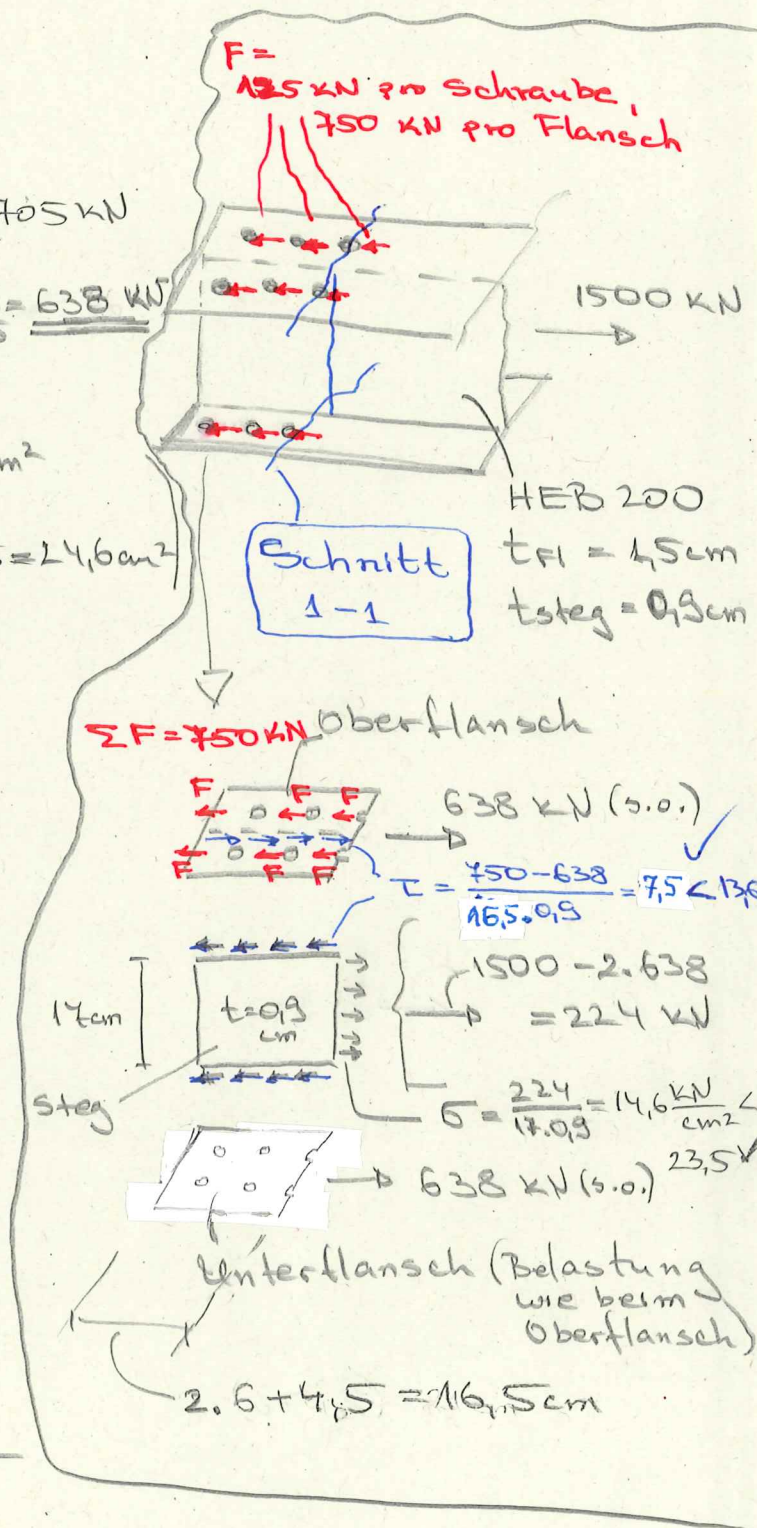 F =
125 kN pro Schraube,
750 kN pro Flansch
705 kN
= 638 kN
1500 kN
m²
= 24,6 cm²
Schnitt
1-1
HEB 200
tFl = 1,5cm
tsteg = 0,9cm
ΣF = 750 kN
Oberflansch
F F F
F F F
638 kN (s.o.)
τ = (750-638)/(16,5·0,9) = 7,5 < 13,6
✓
17cm
t=0,9
cm
1500 - 2·638
= 224 kN
Steg
σ = 224/(17·0,9) = 14,6 kN/cm² <
23,5 ✓
638 kN (s.o.)
Unterflansch (Belastung
wie beim
Oberflansch)
2·6 + 4,5 = 16,5cm